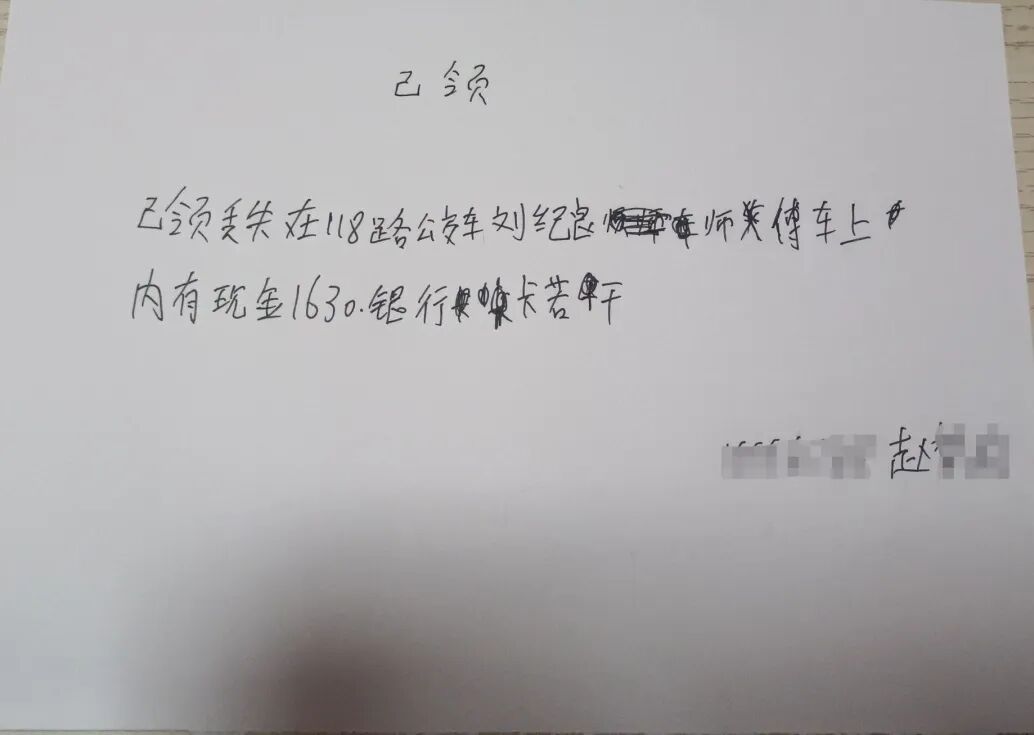 已领
已领丢失在118路公交车刘纪良师傅车上
内有现金1630.银行卡若干
赵